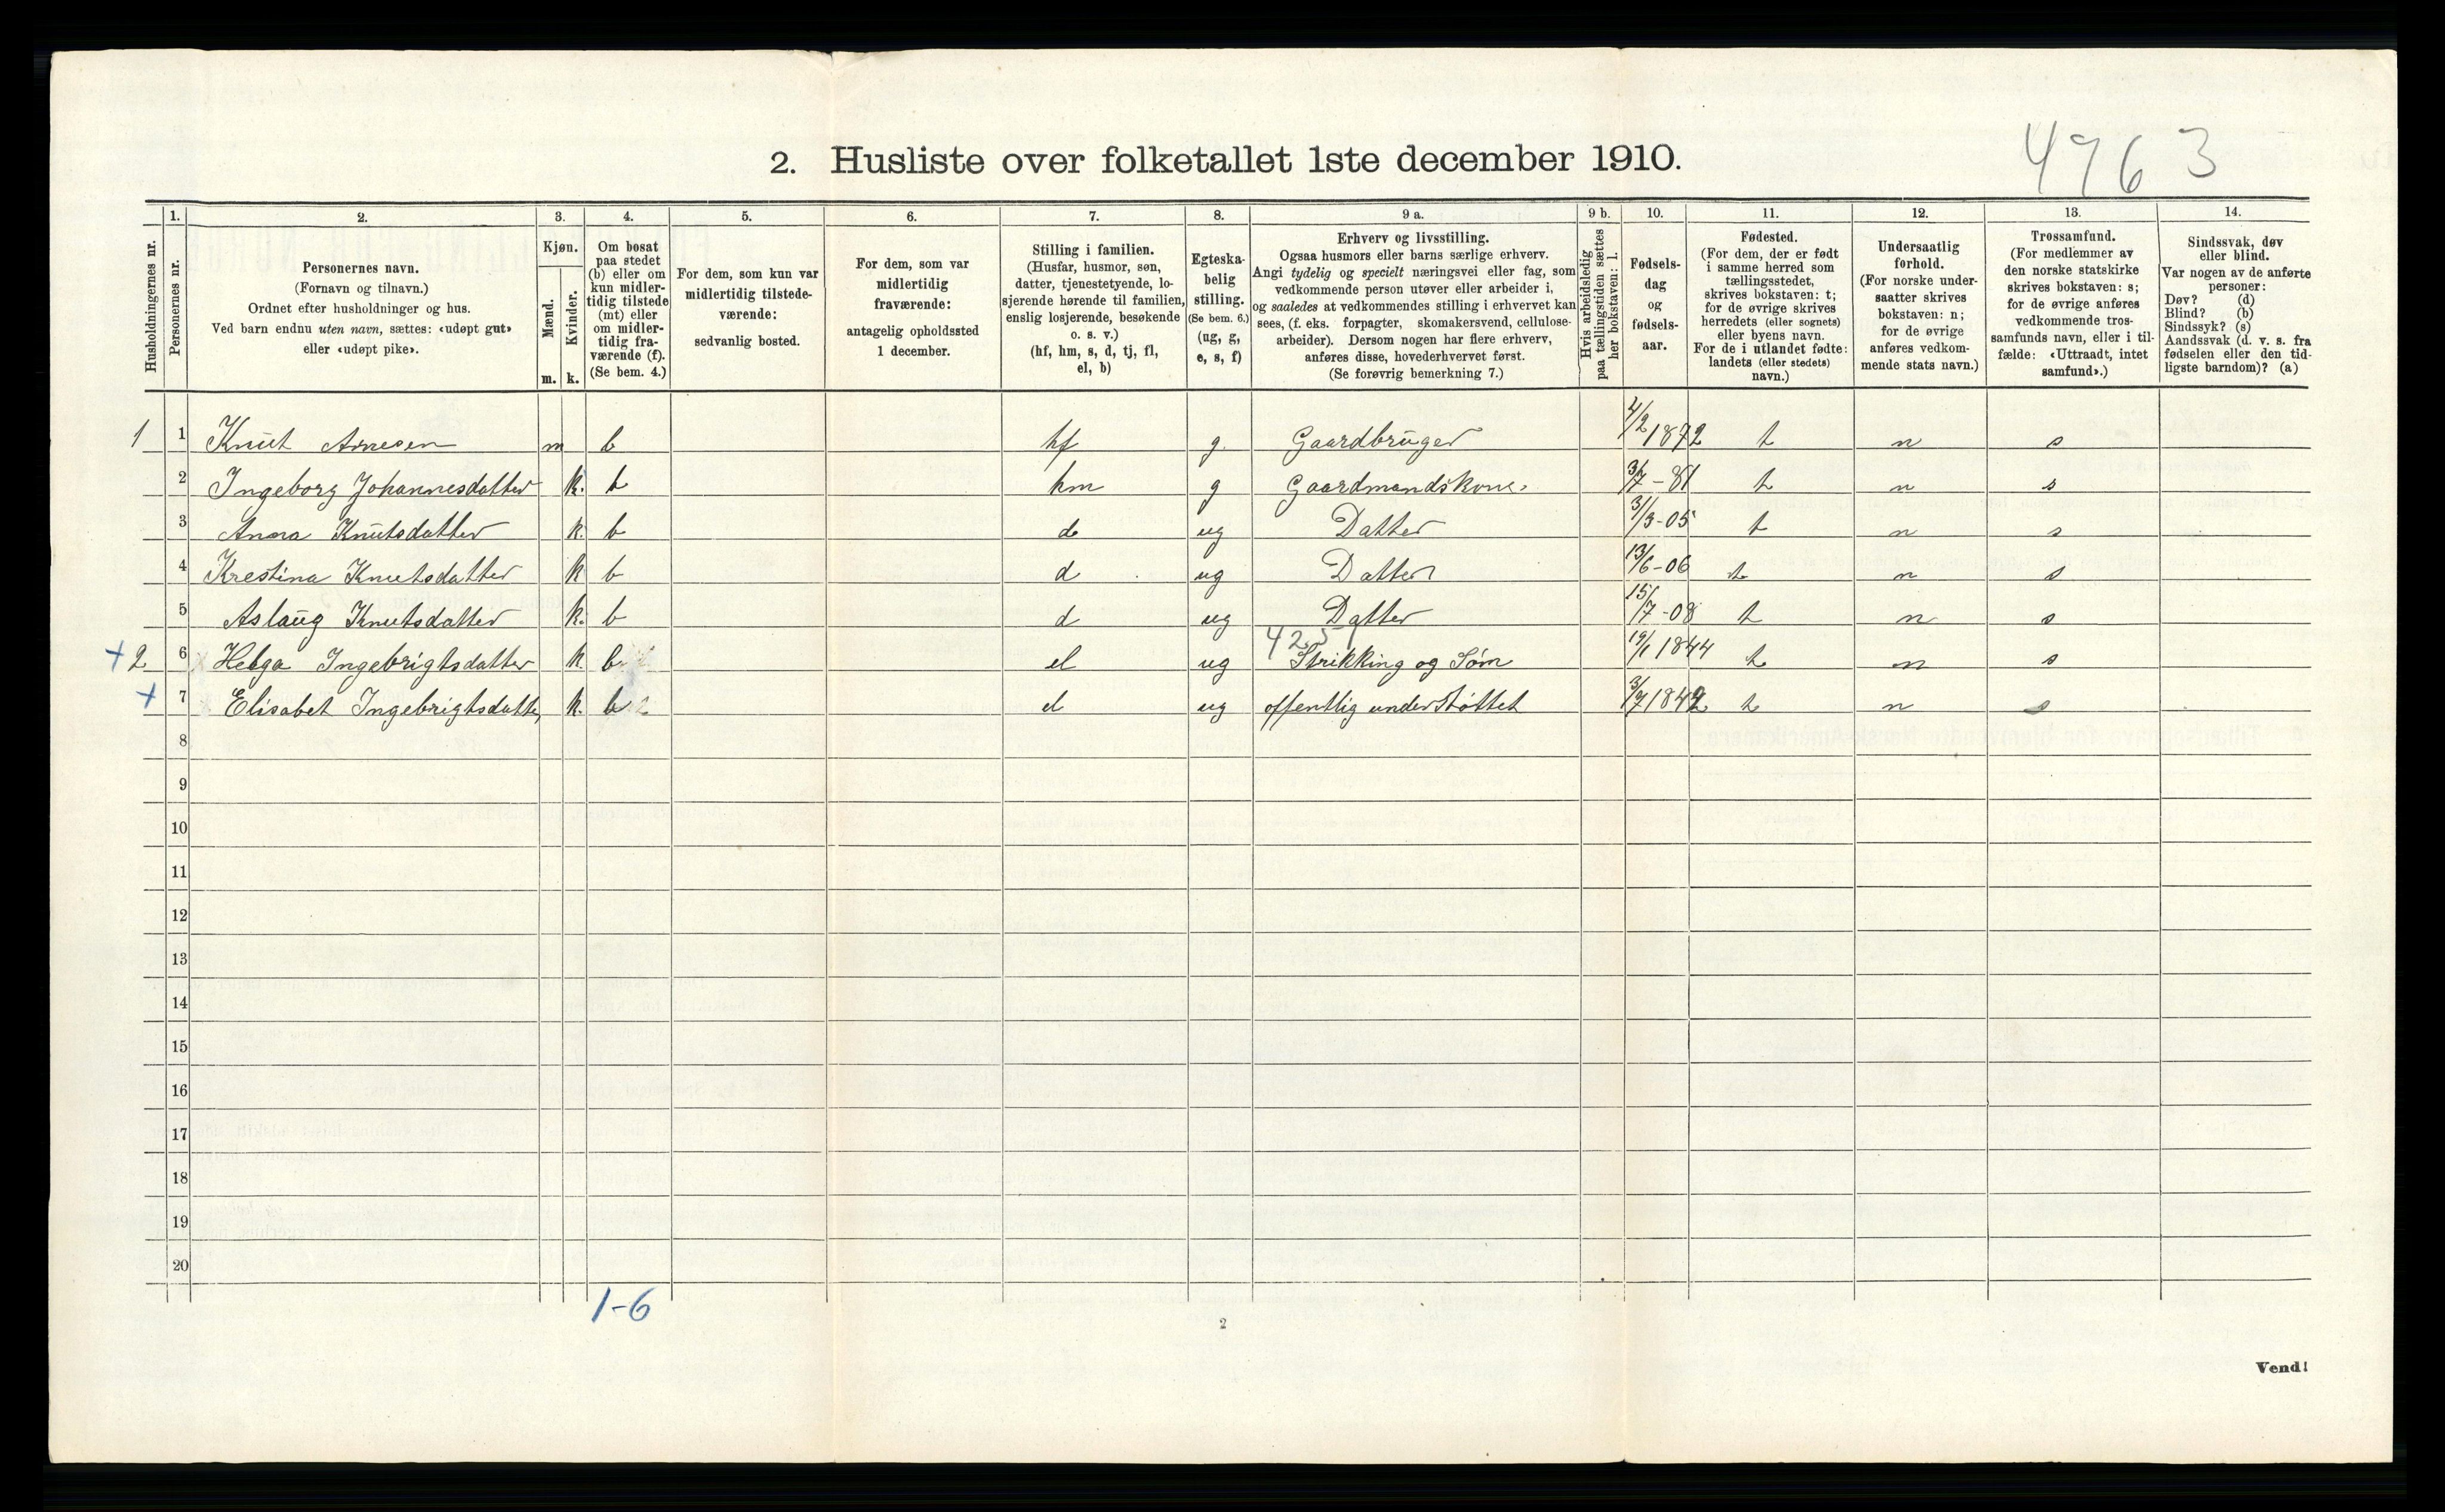 4763
2. Husliste over folketallet 1ste december 1910.
Husholdningernes nr.
1.
Personernes nr.
2.
Personernes navn.
(Fornavn og tilnavn.)
Ordnet efter husholdninger og hus.
Ved barn endnu uten navn, sættes: «udøpt gut»
eller «udøpt pike».
3.
Kjøn.
Mænd.
Kvinder.
m. k.
4.
Om bosat
paa stedet
(b) eller om
kun midler-
tidig tilstede
(mt) eller
om midler-
tidig fra-
værende (f).
(Se bem. 4.)
5.
For dem, som kun var
midlertidig tilstede-
værende:
sedvanlig bosted.
6.
For dem, som var
midlertidig
fraværende:
antagelig opholdssted
1 december.
7.
Stilling i familien.
(Husfar, husmor, søn,
datter, tjenestetyende, lo-
sjerende hørende til familien,
enslig losjerende, besøkende
o. s. v.)
(hf, hm, s, d, tj, fl,
el, b)
8.
Egteska-
belig
stilling.
(Se bem. 6.)
(ug, g,
e, s, f)
9 a.
Erhverv og livsstilling.
Ogsaa husmors eller barns særlige erhverv.
Angi tydelig og specielt næringsvei eller fag, som
vedkommende person utøver eller arbeider i,
og saaledes at vedkommendes stilling i erhvervet kan
sees, (f. eks. forpagter, skomakersvend, cellulose-
arbeider). Dersom nogen har flere erhverv,
anføres disse, hovederhvervet først.
(Se forøvrig bemerkning 7.)
9 b.
Hvis arbeidsledig
paa tællingstiden sættes
her bokstaven: l.
10.
Fødsels-
dag
og
fødsels-
aar.
11.
Fødested.
(For dem, der er født
i samme herred som
tællingsstedet,
skrives bokstaven: t;
for de øvrige skrives
herredets (eller sognets)
eller byens navn.
For de i utlandet fødte:
landets (eller stedets)
navn.)
12.
Undersaatlig
forhold.
(For norske under-
saatter skrives
bokstaven: n;
for de øvrige
anføres vedkom-
mende stats navn.)
13.
Trossamfund.
(For medlemmer av
den norske statskirke
skrives bokstaven: s;
for de øvrige anføres
vedkommende tros-
samfunds navn, eller i til-
fælde: «Uttraadt, intet
samfund».)
14.
Sindssvak, døv
eller blind.
Var nogen av de anførte
personer:
Døv? (d)
Blind? (b)
Sindssyk? (s)
Aandssvak (d. v. s. fra
fødselen eller den tid-
ligste barndom)? (a)
1 1 Knut Arnesen m b hf g. Gaardbruger 4/2 1872 t n s
2 Ingeborg Johannesdatter k. b hm g Gaardmandskone. -81 t n s
3 Anna Knutsdatter k. b d ug Datter 3/3-05 t n s
4 Krestina Knutsdatter k b d ug Datter 13/6-06 t n s
5 Aslaug Knutsdatter k. b d ug Datter 15/7-08 t n s
425
+ 2 6 Helga Ingebrigtsdatter k b el ug Strikking og Søm 19/1 1844 t n s
+ 7 Elisabet Ingebrigtsdatter k. b el ug offentlig understøttet 3/7 1842 t n s
8
9
10
11
12
13
14
15
16
17
18
19
20
1-6
2
Vend!